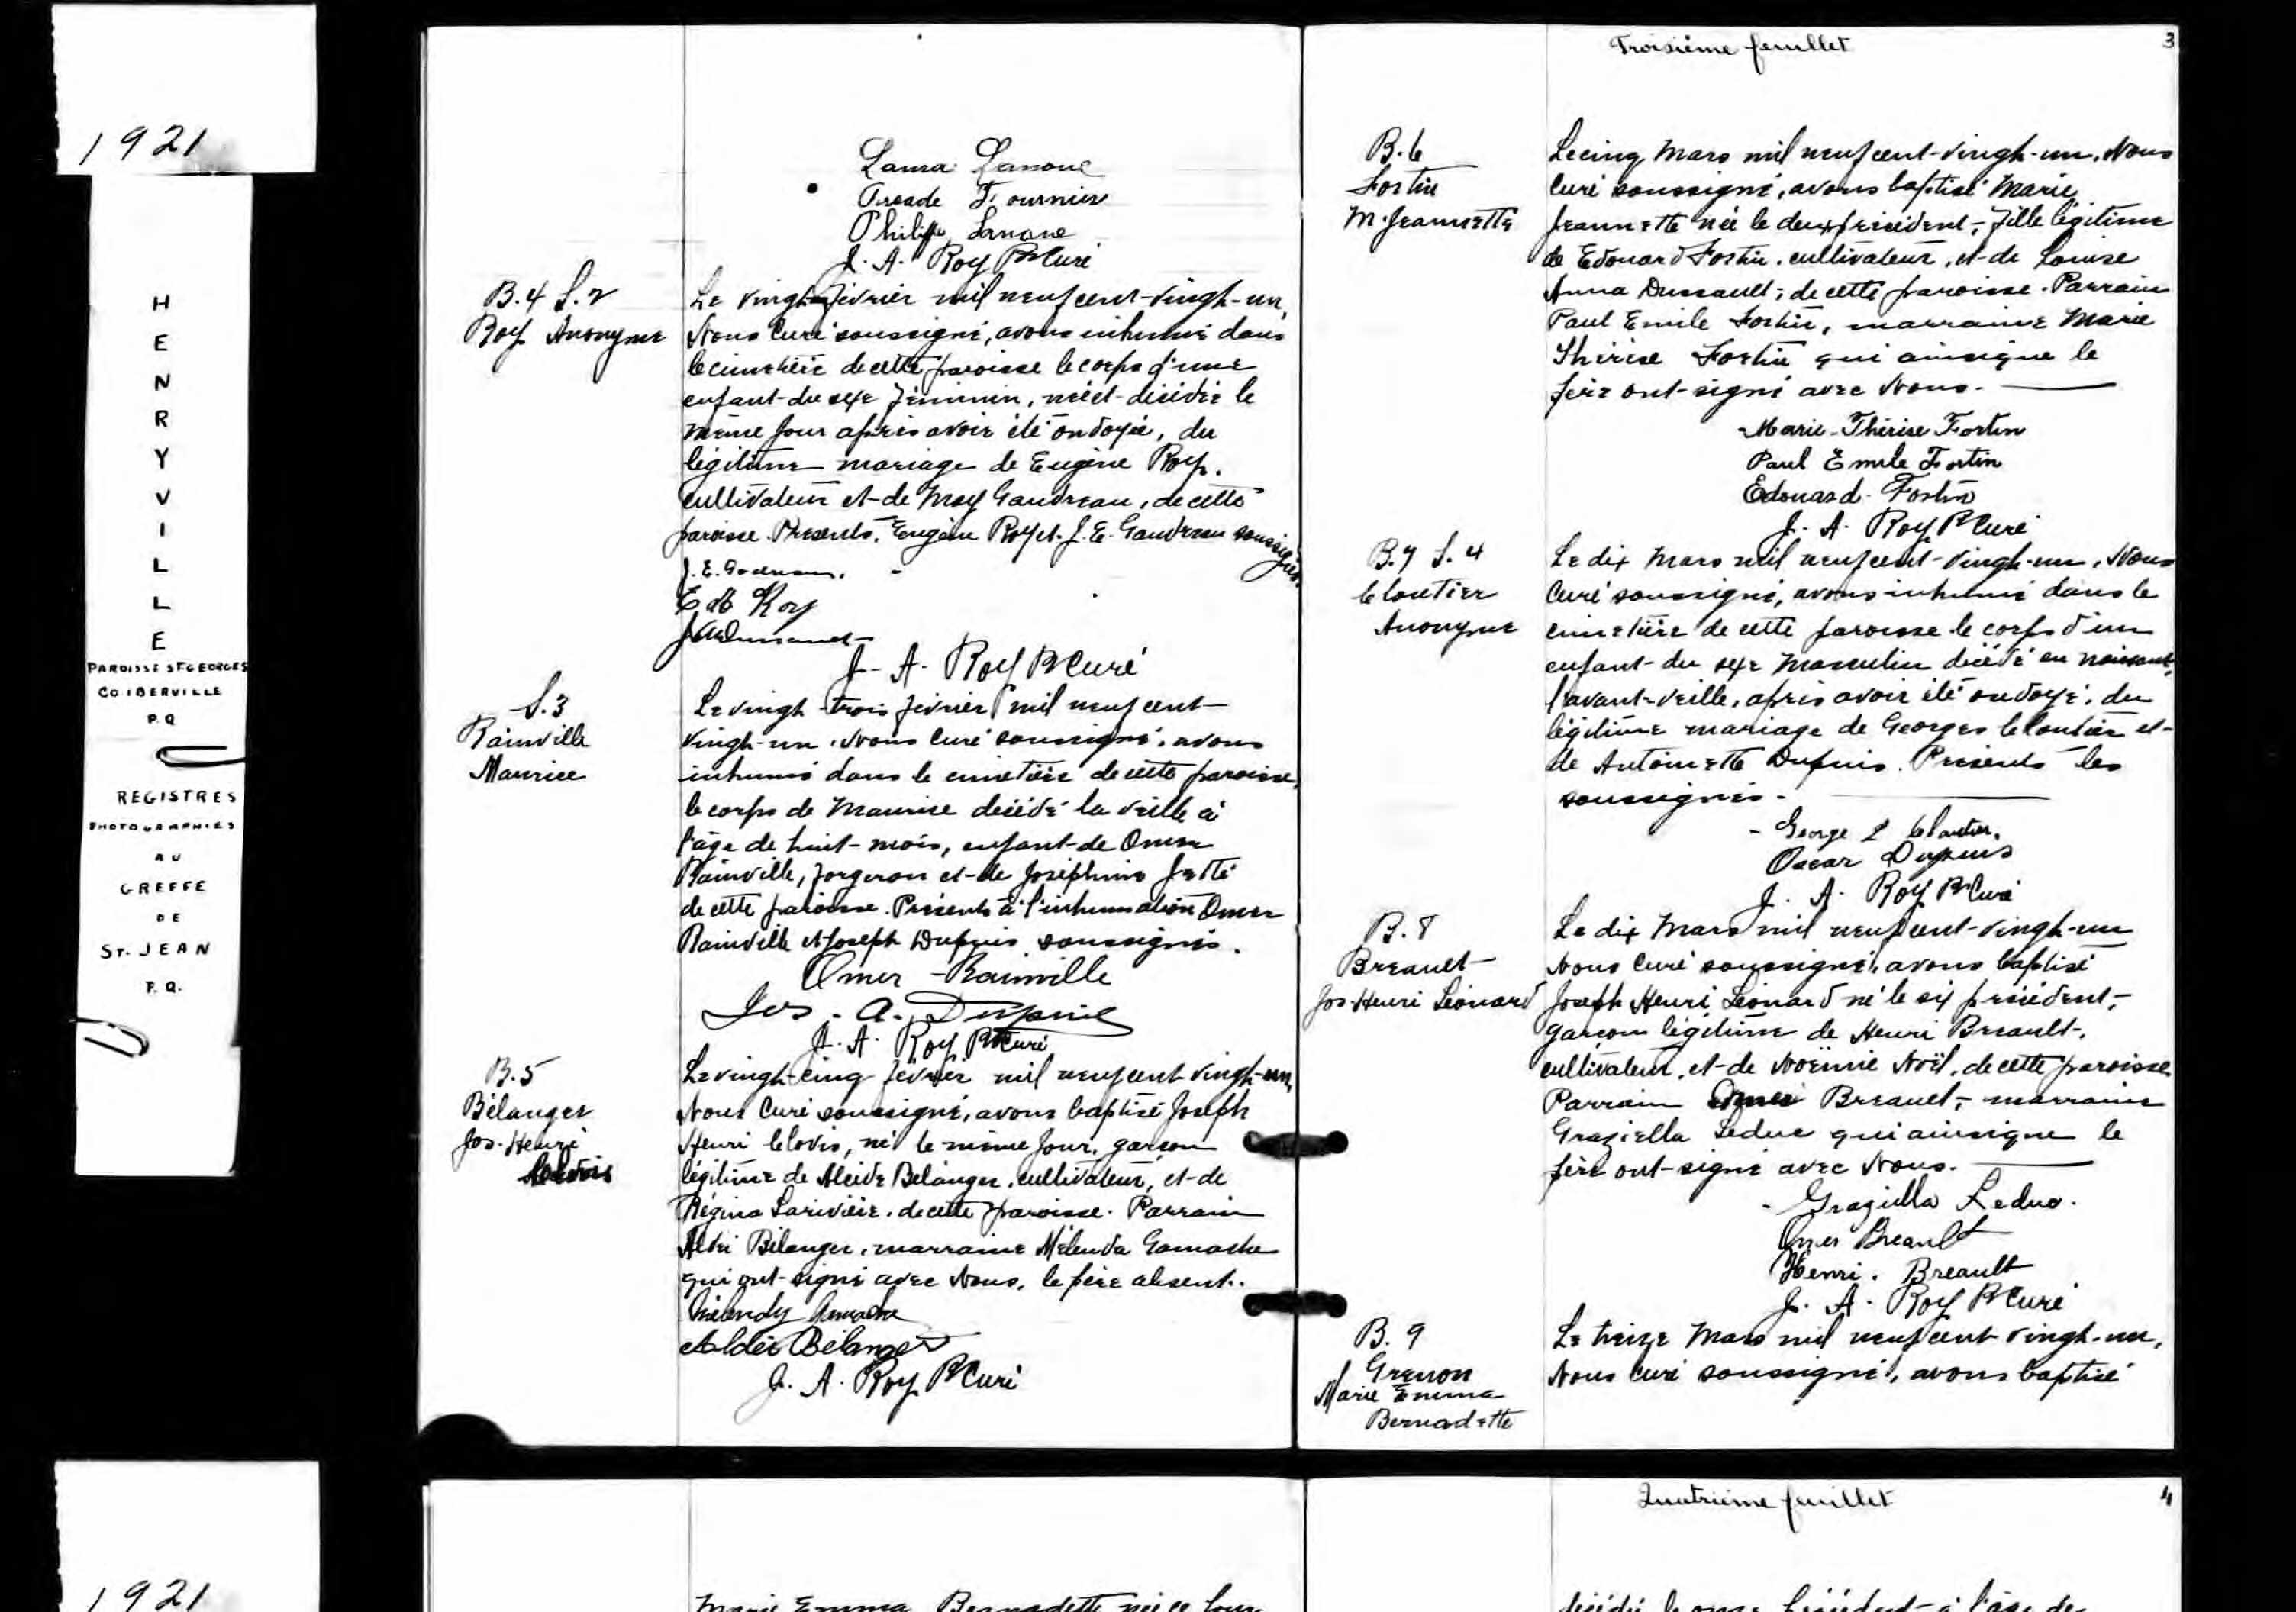 1921
HENRYVILLE
PAROISSE ST GEORGES
CO. IBERVILLE
P.Q
REGISTRES
PHOTOGRAPHIES
AU
GREFFE
DE
ST. JEAN
P.Q.
Laura Lanoue
Arcade Fournier
Philippe Lanoue
J. A. Roy Ptr Curé
B.4 S.2
Roy Anonyme
Le vingt février mil neuf cent-vingt-un,
Nous Curé soussigné, avons inhumé dans
le cimetière de cette paroisse le corps d'une
enfant du sexe féminin, née et décédée le
même jour après avoir été ondoyée, du
légitime mariage de Eugène Roy,
cultivateur et de May Gaudreau, de cette
paroisse. Présents, Eugène Roy et J. E. Gaudreau soussignés.
J. E. Godreau.
Roy
J. A. Roy Ptr Curé
S.3
Rainville
Maurice
Le vingt-trois février mil neuf cent
vingt-un, Nous Curé soussigné, avons
inhumé dans le cimetière de cette paroisse,
le corps de Maurice décédé la veille à
l'âge de huit mois, enfant de Omer
Rainville, forgeron et de Joséphine Jetté
de cette paroisse. Présents à l'inhumation Omer
Rainville et Joseph Dupuis soussignés.
Omer Rainville
Jos. A. Dupuis
J. A. Roy Ptr Curé
B.5
Bélanger
Jos. Henri
Clovis
Le vingt-cinq février mil neuf cent vingt-un,
Nous Curé soussigné, avons baptisé Joseph
Henri Clovis, né le même jour, garçon
légitime de Alcide Bélanger, cultivateur, et de
Régina Larivière, de cette paroisse. Parrain
Aldéi Bélanger, marraine Mélenda Gamache
qui ont signé avec Nous, le père absent.
Gamache
Aldéi Bélanger
J. A. Roy Ptr Curé
Troisième feuillet 3
B.6
Fortin
M. Jeannette
Le cinq Mars mil neuf cent-vingt-un, Nous
Curé soussigné, avons baptisé Marie
Jeannette née le deux précédent, fille légitime
de Edouard Fortin, cultivateur, et de Louise
Anna Dussault, de cette paroisse. Parrain
Paul Emile Fortin, marraine Marie
Thérèse Fortin qui ainsi que le
père ont signé avec Nous.
Marie-Thérèse Fortin
Paul Emile Fortin
Edouard Fortin
J. A. Roy Ptr Curé
B.7 S.4
Cloutier
Anonyme
Le dix Mars mil neuf cent-vingt-un, Nous
Curé soussigné, avons inhumé dans le
cimetière de cette paroisse le corps d'un
enfant du sexe masculin décédé en naissant,
l'avant-veille, après avoir été ondoyé, du
légitime mariage de Georges Cloutier et
de Antoinette Dupuis. Présents les
soussignés.
George L Cloutier.
Oscar Dupuis
J. A. Roy Ptr Curé
B.8
Breault
Jos-Henri Léonard
Le dix Mars mil neuf cent-vingt-un
Nous Curé soussigné, avons baptisé
Joseph Henri Léonard né le six précédent,
garçon légitime de Henri Breault,
cultivateur, et de Noëmie Noël, de cette paroisse
Parrain Omer Breault, marraine
Graziella Leduc qui ainsi que le
père ont signé avec Nous.
Graziella Leduc.
Omer Breault
Henri. Breault
J. A. Roy Ptr Curé
B.9
Grenon
Marie Emma
Bernadette
Le treize Mars mil neuf cent vingt-un,
Nous Curé soussigné, avons baptisé
1921
Quatrième feuillet 4
Marie Emma Bernadette née ce jour
décédé le onze précédent à l'âge de